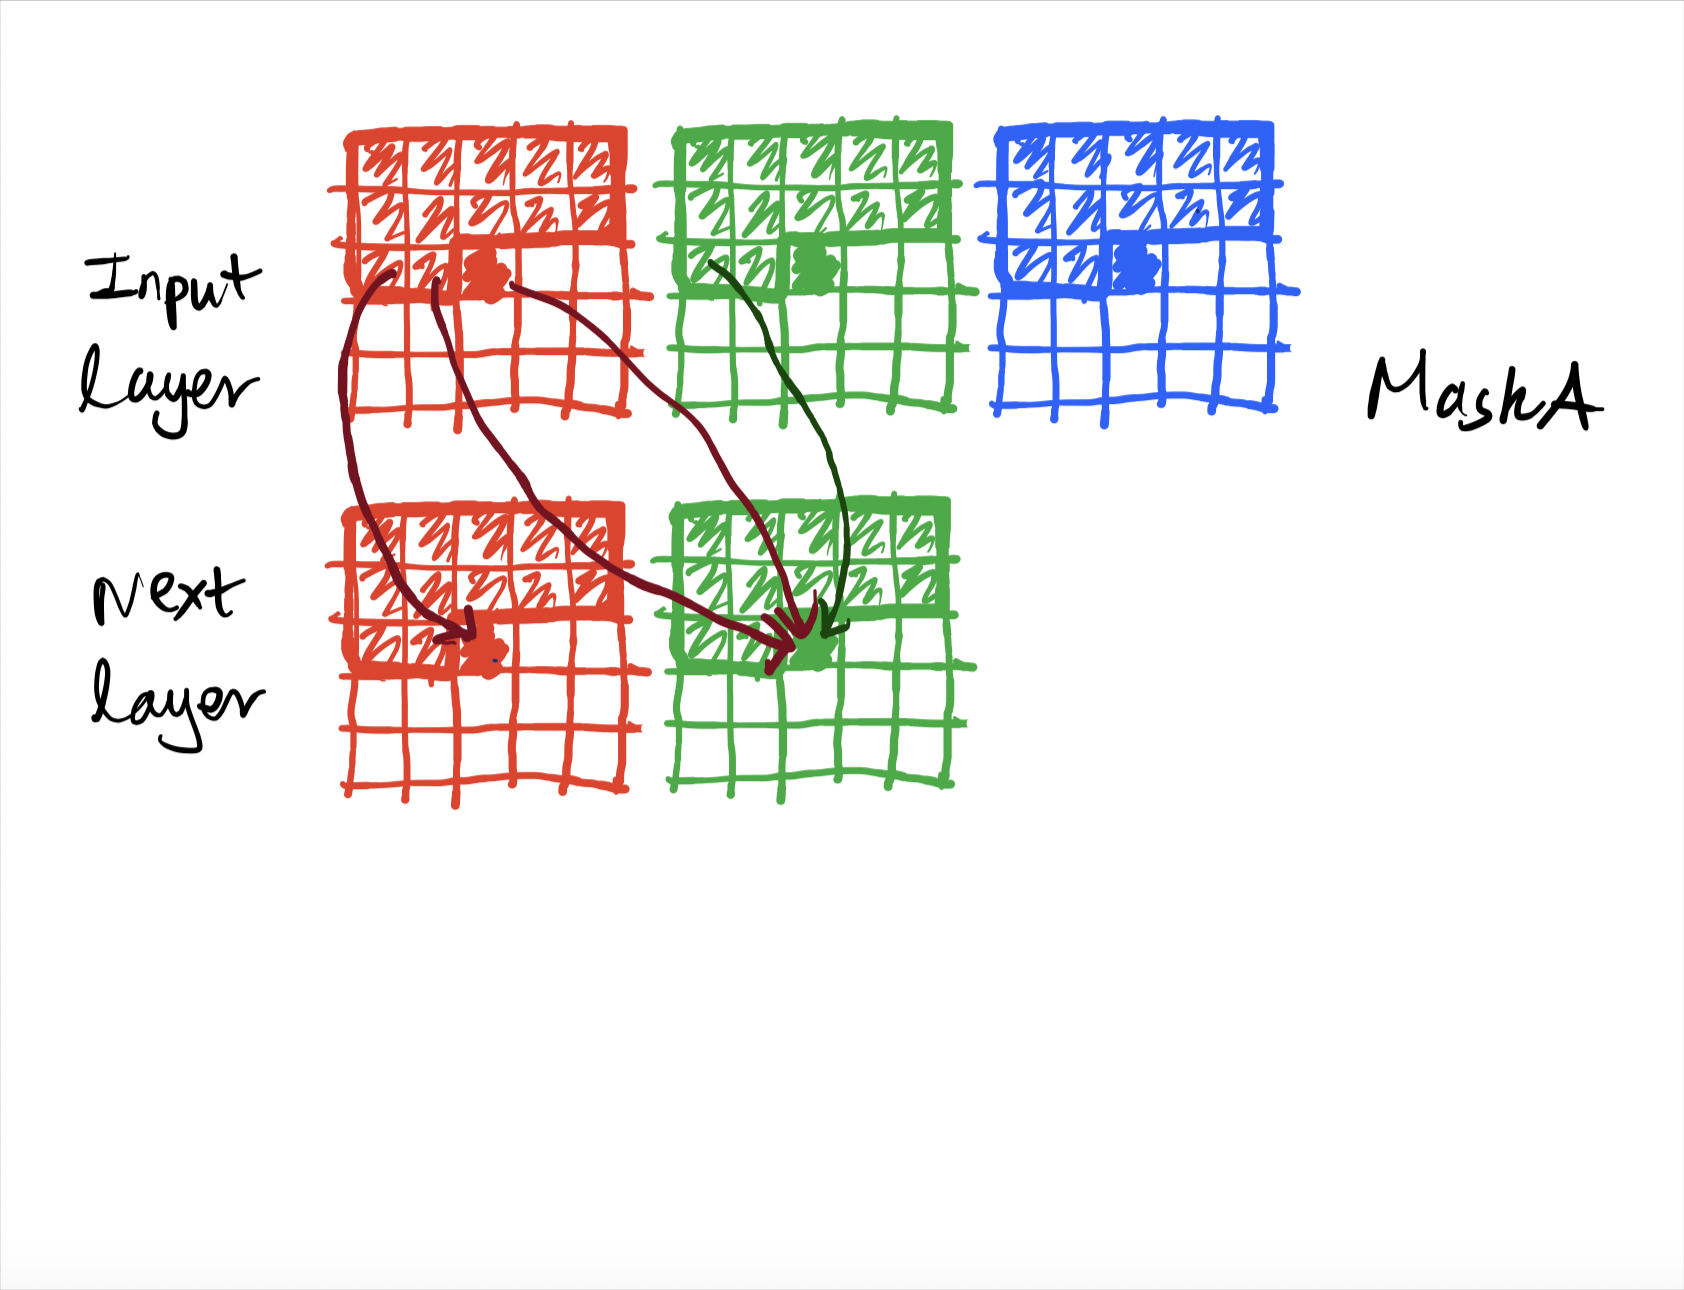 Input
Layer
Mask A
Next
Layer